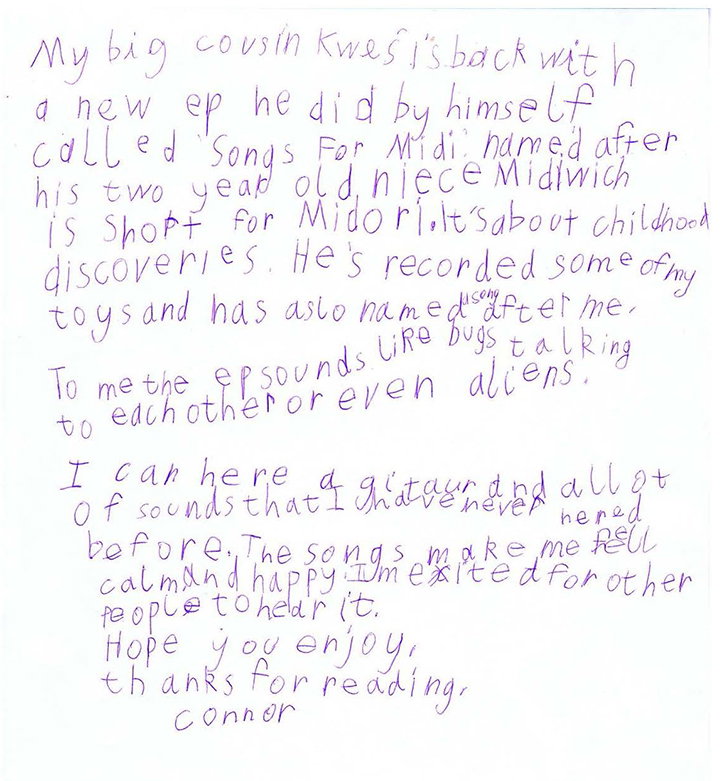 My big cousin Kwes is back with
a new ep he did by himself
called 'Songs For Midi' named after
his two year old niece Midi wich
is short for Midori. It's about childhood
discoveries. He's recorded some of my
toys and has aslo named a song after me.
To me the ep sounds like bugs talking
to each other or even aliens.
I can here a gitaur and all ot
of sounds that I have never hered
before. The songs make me feel
calm and happy. I'm exited for other
people to hear it.
Hope you enjoy,
thanks for reading,
connor